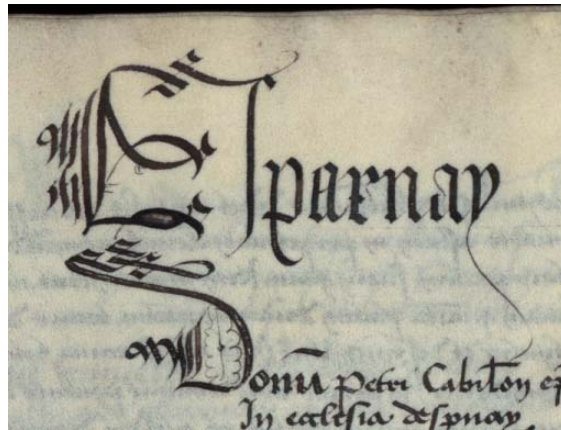 Esparnay
Donu Petri Cabilon ep
In ecclesia despnay